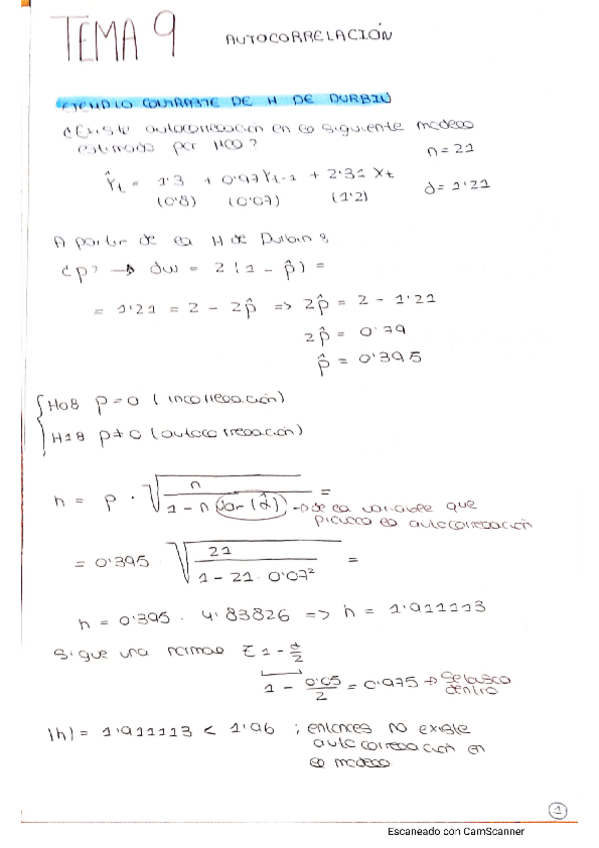 TEMA 9
AUTOCORRELACIÓN
EJEMPLO CONTRASTE DE H DE DURBIN
¿Existe autocorrelación en el siguiente modelo
estimado por MCO?
n = 21
Ŷt = 1'3 + 0'97Yt-1 + 2'31 Xt
(0'8) (0'07) (1'2)
d = 1'21
A partir de la H de Durbin:
¿p? → dw = 2 (1 - p̂) =
= 1'21 = 2 - 2p̂ => 2p̂ = 2 - 1'21
2p̂ = 0'79
p̂ = 0'395
H0: p = 0 (incorrelación)
H1: p ≠ 0 (autocorrelación)
h = p · √ n / 1 - n Var (α̂) = → de la variable que
provoca la autocorrelación
= 0'395 · √ 21 / 1 - 21 · 0'07² =
h = 0'395 · 4'83826 => h = 1'911113
Sigue una normal Z 1 - α/2
1 - 0'05/2 = 0'975 → Se busca
dentro
|h| = 1'911113 < 1'96 ; entonces no existe
autocorrelación en
el modelo
1
Escaneado con CamScanner